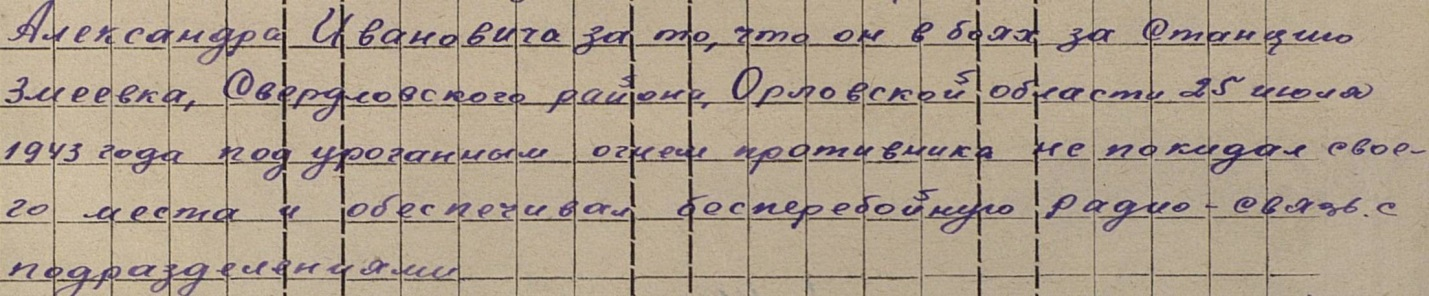 Александра Ивановича за то, что он в боях за Станцию
Змеевка, Свердловского района, Орловской области 25 июля
1943 года под уроганным огнем противника не покидал свое-
го места и обеспечивал бесперебойную радио-связь с
подразделениями